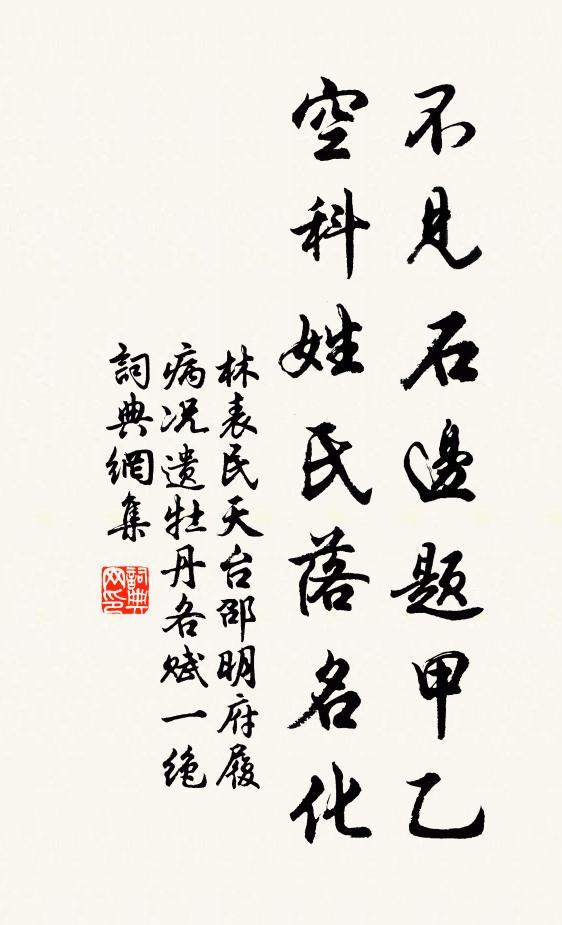 不見石邊題甲乙
空科姓氏落名化
林表民天台邵明府履
病况遺牡丹各賦一絶
詞典網集
詞典
网印